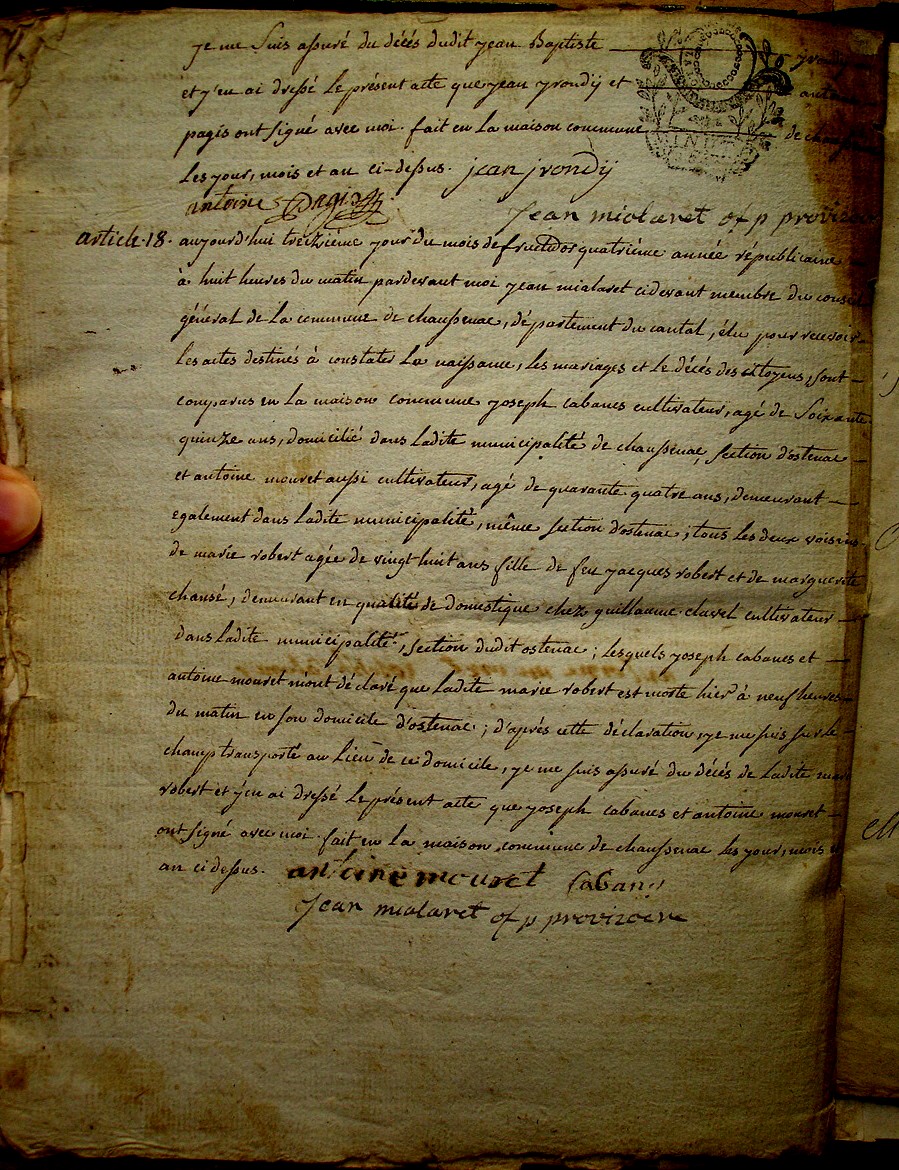 je me suis assuré du décés dudit jean Baptiste yrondy
et j'en ai dressé le présent acte que jean yrondij et antoine
pagis ont signé avec moi. fait en la maison commune de chaussenac
les jour, mois et an ci-dessus. jean jrondij
antoine Pagis
jean mialaret of p provizoire
article 18. aujourd'hui treizième jour du mois de fructidor quatrième année républicaine
à huit heures du matin pardevant moi jean mialaret cidevant membre du conseil
général de la commune de chaussenac, département du cantal, élu pour recevoir
les actes destinés à constater la naissance, les mariages et le décés des citoyens, sont
comparus en la maison commune joseph cabanes cultivateur, agé de soixante
quinze ans, domicilié dans ladite municipalité de chaussenac, section d'ostenac
et antoine mouret aussi cultivateur, agé de quarante quatre ans, demeurant
egalement dans ladite municipalité, même section d'ostenac ; tous les deux voisins
de marie robert agée de vingt huit ans fille de feu jacques robert et de marguerite
chansé, demeurant en qualité de domestique chez guillaume clavel cultivateur
dans ladite municipalité, section dudit ostenac ; lesquels joseph cabanes et
antoine mouret m'ont déclaré que ladite marie robert est morte hier à neuf heures
du matin en son domicile d'ostenac ; d'après cette déclaration, je me suis sur le
champ transporté au lieu de ce domicile, je me suis assuré du décés de ladite marie
robert et j'en ai dressé le présent acte que joseph cabanes et antoine mouret
ont signé avec moi. fait en la maison commune de chaussenac les jour, mois et
an cidessus. antoine mouret Cabanes
jean mialaret of p provizoire